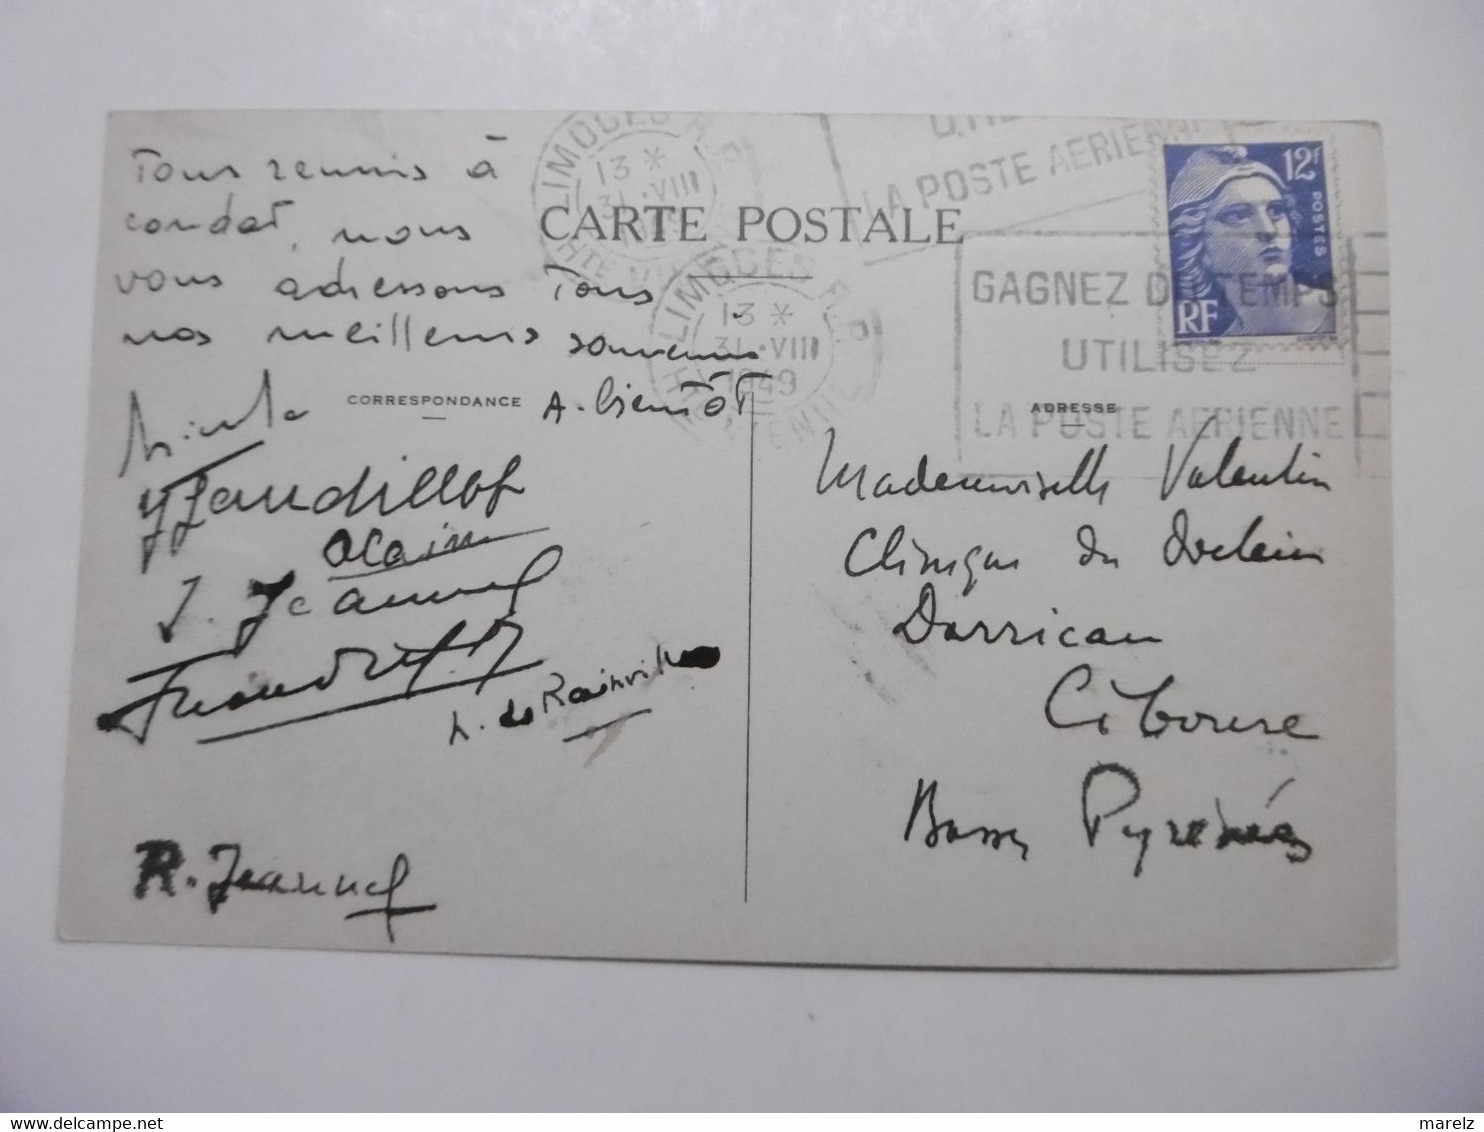 LIMOGES R.P.
13 *
31 · VIII
HTE VIENNE
UTILISEZ
LA POSTE AERIENNE
12F
POSTES
RF
CARTE POSTALE
LIMOGES R.P.
13 *
31 · VIII
1949
HTE VIENNE
GAGNEZ DU TEMPS
UTILISEZ
LA POSTE AERIENNE
Tous reunis à
condat, nous
vous adressons Tous
nos meilleurs souvenirs
CORRESPONDANCE
A. bientôT
Nicole
Alain
J. Jeannel
h. de Rainville
R. Jeannel
ADRESSE
Mademoiselle Valentin
Clinique du docteur
Darrican
Ciboure
Basses Pyrenées
marelz
delcampe.net